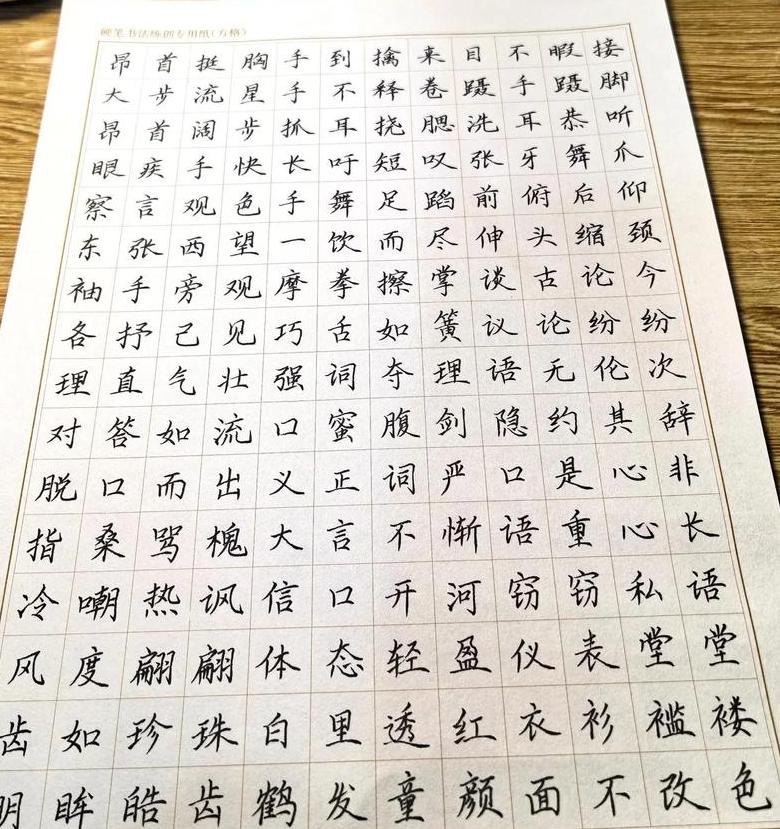 硬笔书法练创专用纸(方格)
昂首挺胸手到擒来目不暇接
大步流星手不释卷蹑手蹑脚
昂首阔步抓耳挠腮洗耳恭听
眼疾手快长吁短叹张牙舞爪
察言观色手舞足蹈前俯后仰
东张西望一饮而尽伸头缩颈
袖手旁观摩拳擦掌谈古论今
各抒己见巧舌如簧议论纷纷
理直气壮强词夺理语无伦次
对答如流口蜜腹剑隐约其辞
脱口而出义正词严口是心非
指桑骂槐大言不惭语重心长
冷嘲热讽信口开河窃窃私语
风度翩翩体态轻盈仪表堂堂
齿如珍珠白里透红衣衫褴褛
明眸皓齿鹤发童颜面不改色